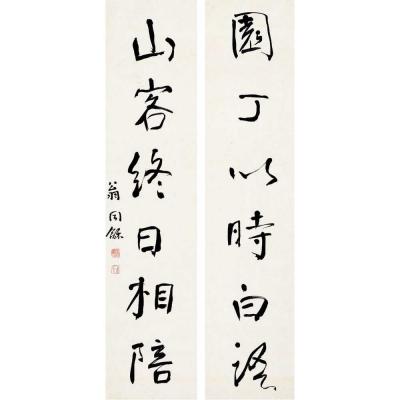 園丁以時白謁
山客終日相陪
翁同龢